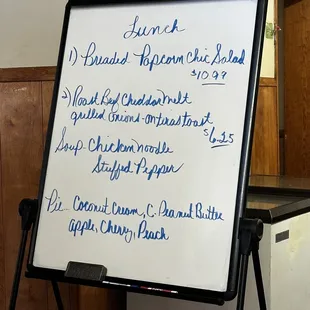 Lunch
1) Breaded Popcorn Chic Salad
$10.99
2) Roast Beef Cheddar melt
grilled onions - on texas toast
$6.25
Soup - Chicken noodle
Stuffed Pepper
Pie - Coconut Cream, C. Peanut Butter
apple, Cherry, Peach